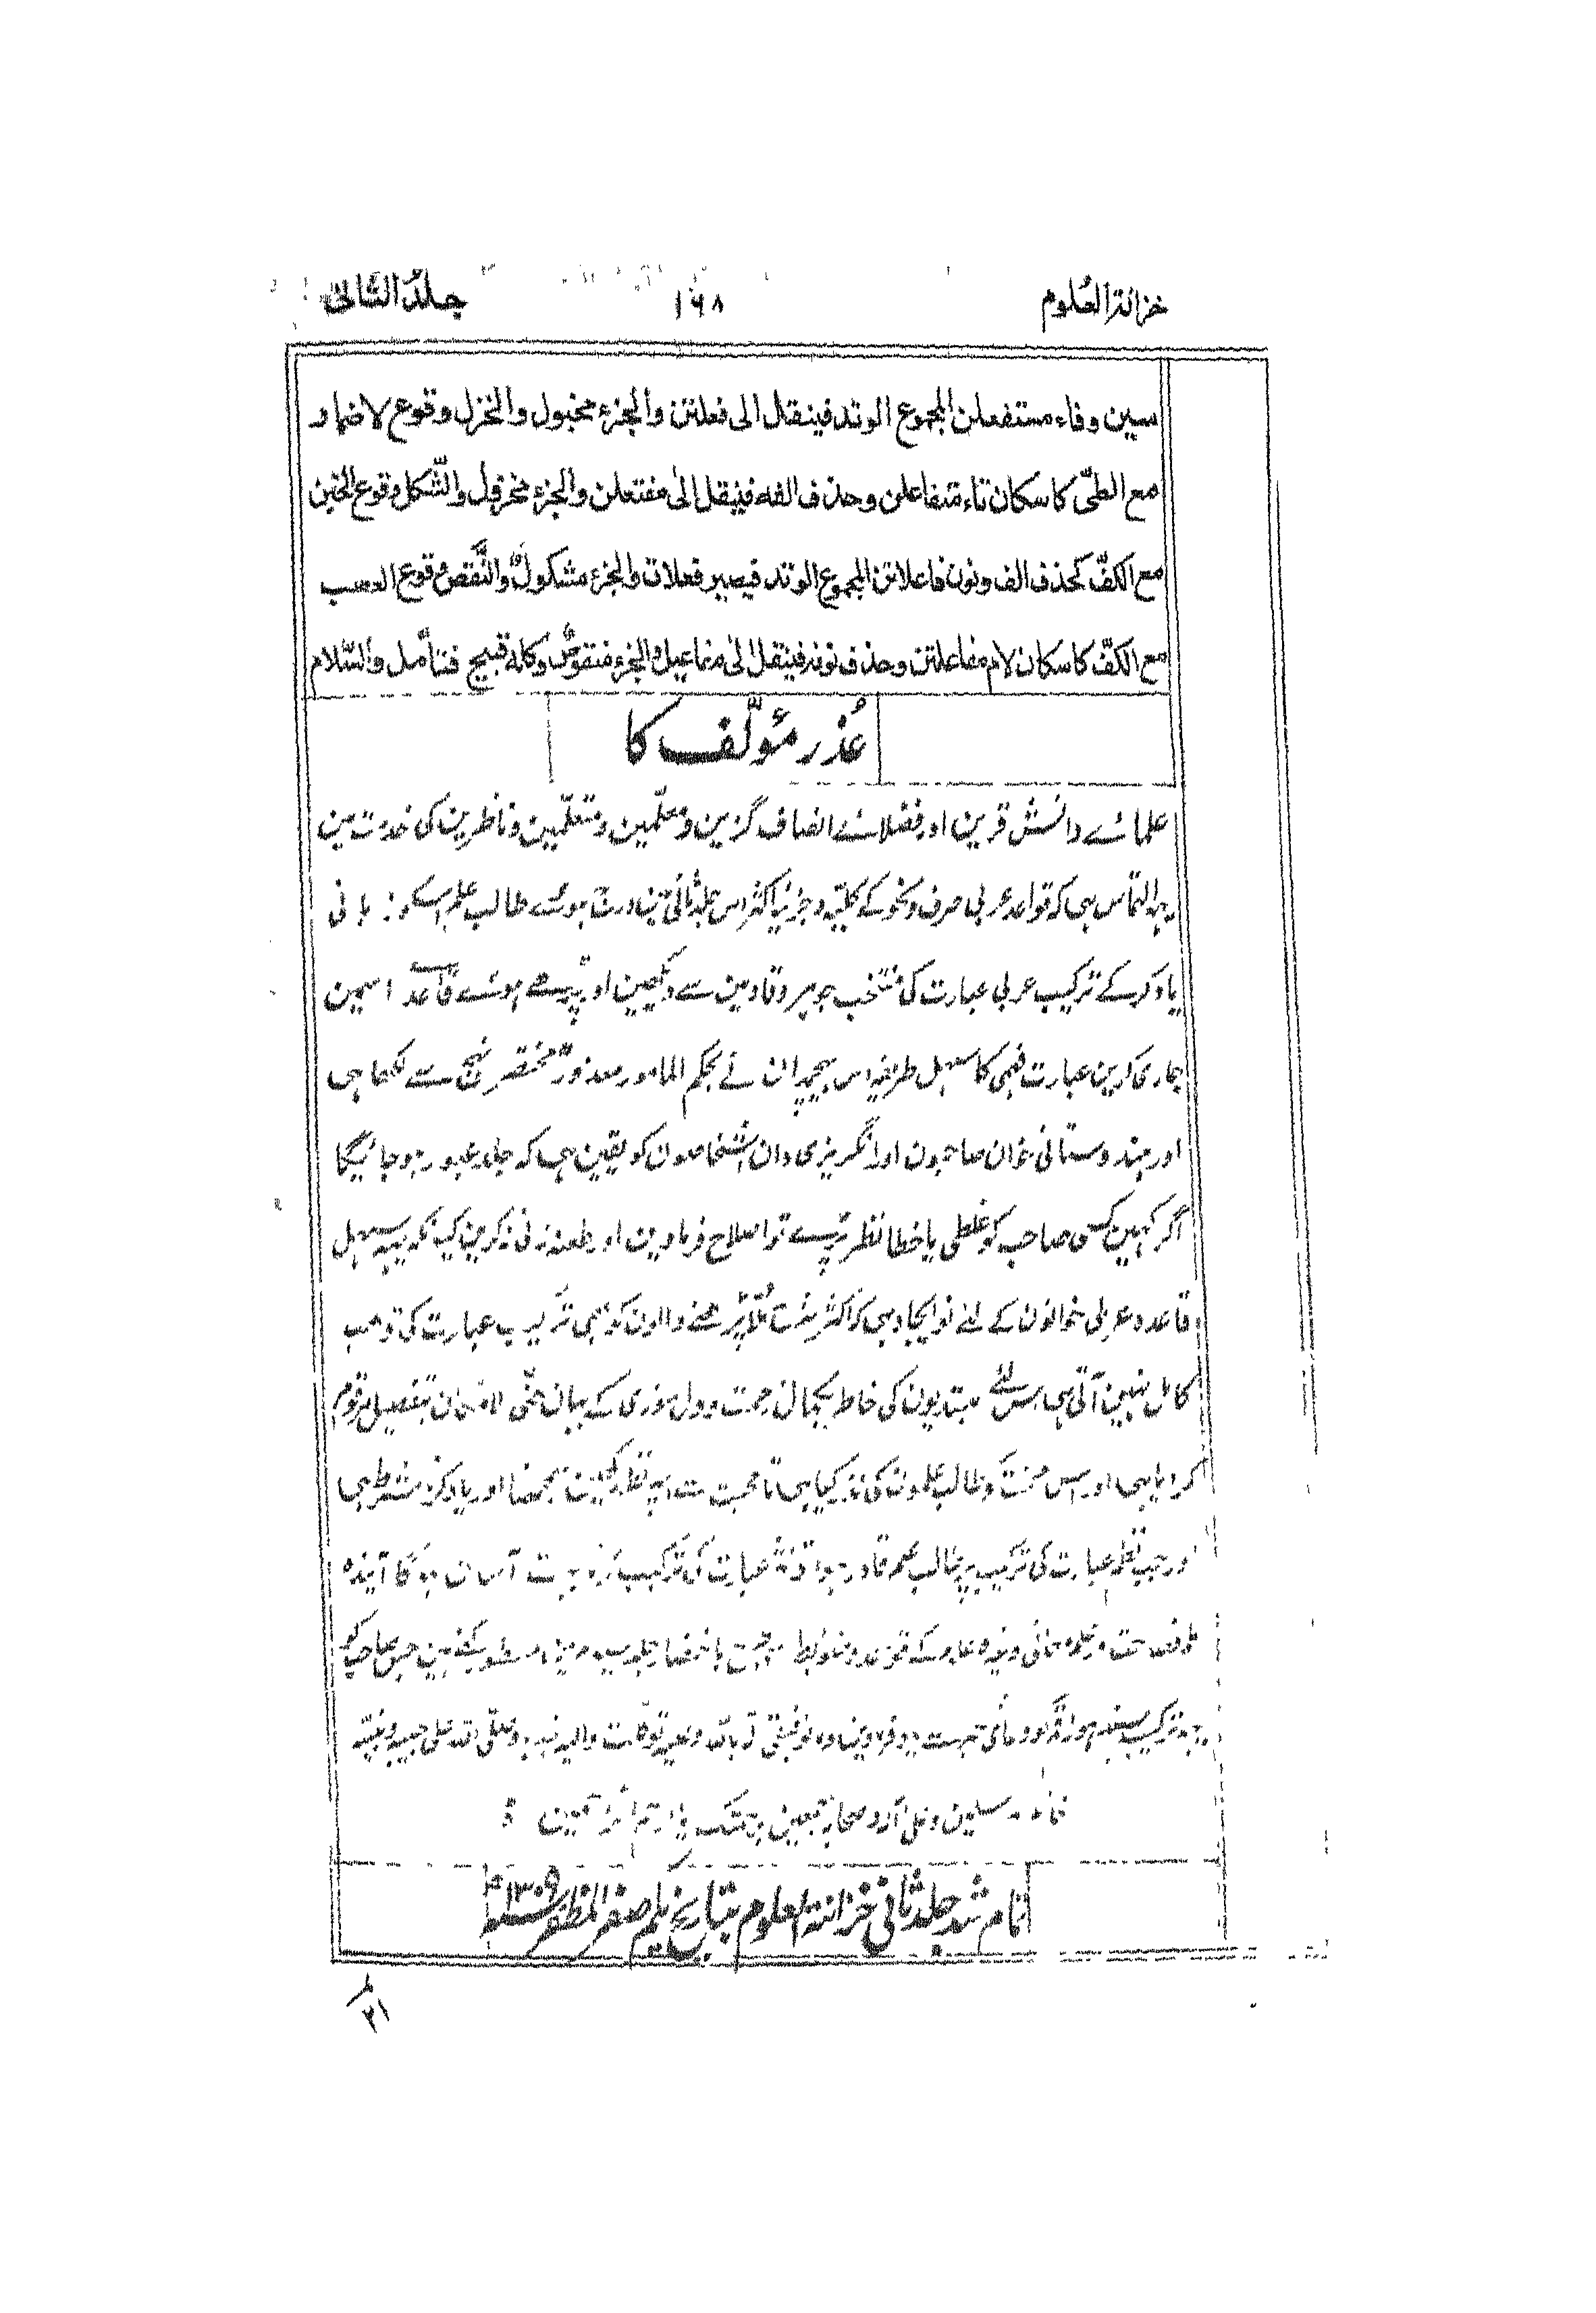 خزانة العُلوم
۱۶۸
جلدُ الثّانی
سین وفاء مستفعلن المجموع الوتد فینقل الی فعلتن والجزء مخبول والخزل وقوع الاضمار
مع الطیّ کاسکان تاء متفاعلن وحذف الفه فینقل الیٰ مفتعلن والجزء مخزول والشّکل وقوع الخبن
مع الکفّ کحذف الف ونون فاعلاتن المجموع الوتد فیصیر فعلات والجزء مشکولٌ والنّقص وقوع العصب
مع الکفّ کاسکان لام مفاعلتن وحذف نونه فینقل الیٰ مفاعیل والجزء منقوصٌ وکله قبیح فتأمل والسّلام
عُذر مؤلّف کا
علمائے دانش قرین اور فضلائے انصاف گزین ومعلّمین ومتعلّمین وناظرین کی خدمت مین
یہہ التماس ہی کہ قواعد عربی صرف ونحو کے کلیّہ وجزئیہ اکثر اس جلد ثانی مین درج ہوئے طالب علم اسکو زبانی
یاد کرکے ترکیب عربی عبارت کی منتخب جوہر وقادمین سے دیکھین اور پڑہے ہوئے قاعدے اسمین
جاری کرین عبارت فہمی کا سہل طریقہ اس ہیچمدان نے بحکم المامور معذورٌ مختصر نہج سے لکھا ہی
اور ہندوستانی خوان صاحبون اور انگریزی دان اشخاصون کو یقین ہی کہ جلد عبور ہوجائیگا
اگر کہین کسی صاحب کو غلطی یا خطا نظر پڑے تو اصلاح فرماوین اور طعنہ زنی نہ کرین کیونکہ یہہ سہل
قاعدہ عربی خوانون کے لئے نو ایجاد ہی کہ اکثر شرح مُلّا پڑہنے والون کو بھی ترکیب عبارت کی توجب
کامل نہین آتی ہی اس لئے مبتدیون کی خاطر بکمال محنت ودل سوزی کے بیان حتّی الامکان بتفصیل مرقوم
کردیا ہی اور اس محنت کو طالب علمون کی نذر کیا ہی تا محبت سے اسپر نظر رکھین سمجھنا اور یاد کرنا شرط ہی
اور جب نظم عبارت کی ترکیب پر طالب علم قادر ہوا تو نثر عبارت کی ترکیب کرنا بہت آسان ہوگا آیندہ
جس صاحبکو
وصلّی اللہ علی حبیبہ ونبیّہ
تمام شد جلد ثانی خزانة العلوم بتاریخ یکم صفر المظفر سنہ ۱۳۰۹ھ
۲۱